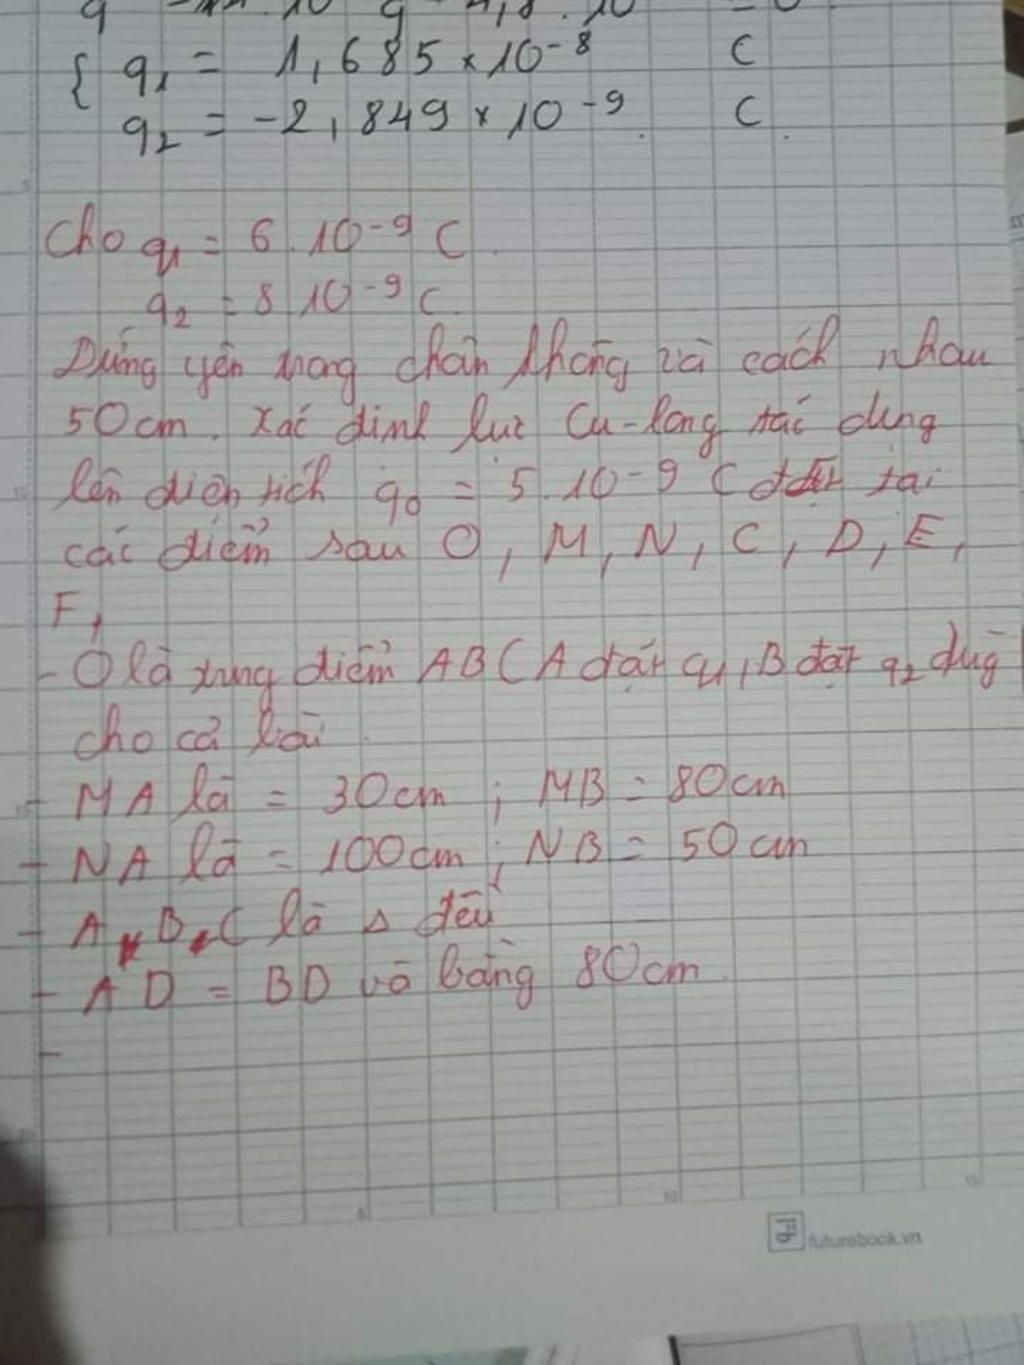 { q₁ = 1,685 × 10⁻⁸ C
q₂ = -2,849 × 10⁻⁹ C
Cho q₁ = 6.10⁻⁹ C
q₂ = 8 10⁻⁹ C
Đứng yên trong chân không và cách nhau
50cm. Xác định lực Cu-lông tác dụng
lên điện tích q₀ = 5.10⁻⁹ C đặt tại
các điểm sau O, M, N, C, D, E,
F,
- O là trung điểm AB (A đặt q₁, B đặt q₂ dùg
cho cả bài
- MA là = 30cm ; MB = 80cm
- NA là = 100cm ; NB = 50cm
- A, B, C là Δ đều
- AD = BD và bằng 80cm
-
futurebook.vn